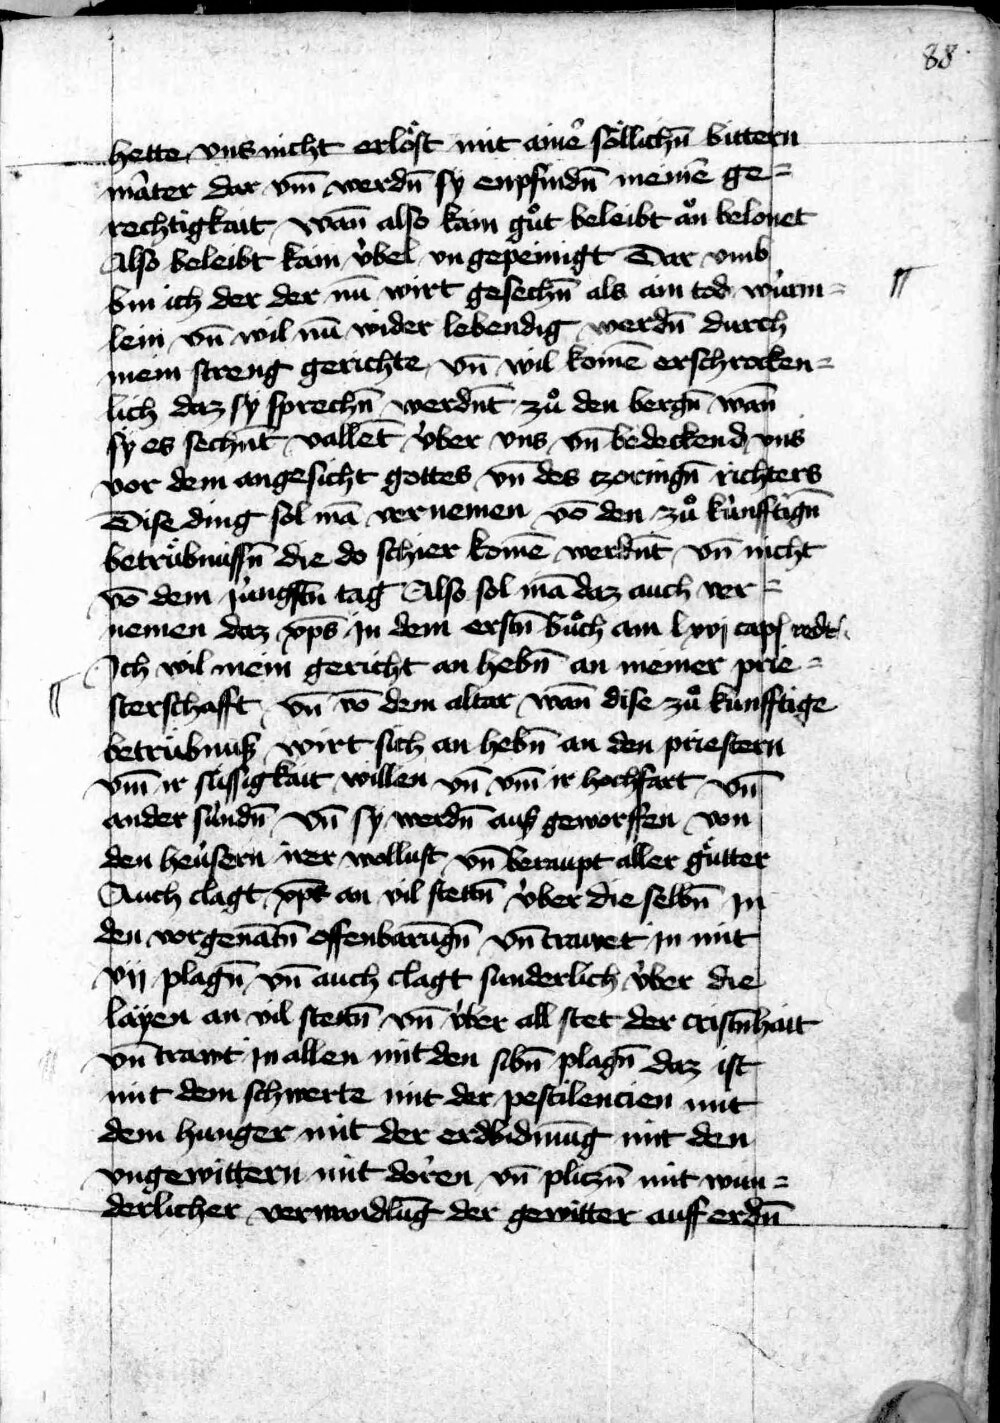 88
hette vns nicht erlöst mit aine᷑ söllichn̄ bittern
mâter dar vm̄ werdn̄ sy enpfindn̄ meinē ge=
rechtigkait wan̄ also kain gůt beleibt ån belonet
Also beleibt kain v̀bel vn gepeinigt Dar vmb
bin ich der der nū wirt gesechn̄ als ain tod wùrm=
lein vn̄ wil nū wider lebendig werdn̄ durch
mein streng gerichte vn̄ wil komē erschrocken=
lich daz sy sprechn̄ werdn̄t zů den bergn̄ wan̄
sy es sechn̄t vallēt v̀ber vns vn̄ bedeckend vns
vor dem angesicht gottes vn̄ des zoringn̄ richters
Dise ding sol mā vernemen vō den zů kùnfftign̄
betrůbnussn̄ die do schier komē werdn̄t vn̄ nicht
vō dem jùngstn̄ tag Also sol mā daz auch ver=
nemen daz xp̄s jn dem erstn̄ bůch am lxvj capl redt
Ich wil mein gericht an hebn̄ an meiner prie=
sterschafft vn̄ vō dem altar wan̄ dise zů kùnfftige
betrůbnuß wirt sich an hebn̄ an den priestern
vm̄ ir slissigkait willen vn̄ vm̄ ir hochfart vn̄
ander sùndn̄ vn̄ sy werdn̄ auß geworffen von
den heùsern irer wollust vn̄ beraupt aller gůtter
Auch clagt xp̄s an vil stetn̄ v̀ber die selbn̄ jn
den vorgenātn̄ offenbarūgn̄ vn̄ trawet jn mit
vij plagn̄ vn̄ auch clagt sunderlich v̀ber die
layen an vil stetn̄ vn̄ v̀ber all stet der cristn̄hait
vn̄ trawt jn allen mit den sibn̄ plagn̄ daz ist
mit dem schwerte mit der pestilencien mit
dem hunger mit der erdbidmūg mit den
vngewittern mit doṙen vn̄ pliczn̄ mit wun=
derlicher verwandlūg der gewitter auff erdn̄